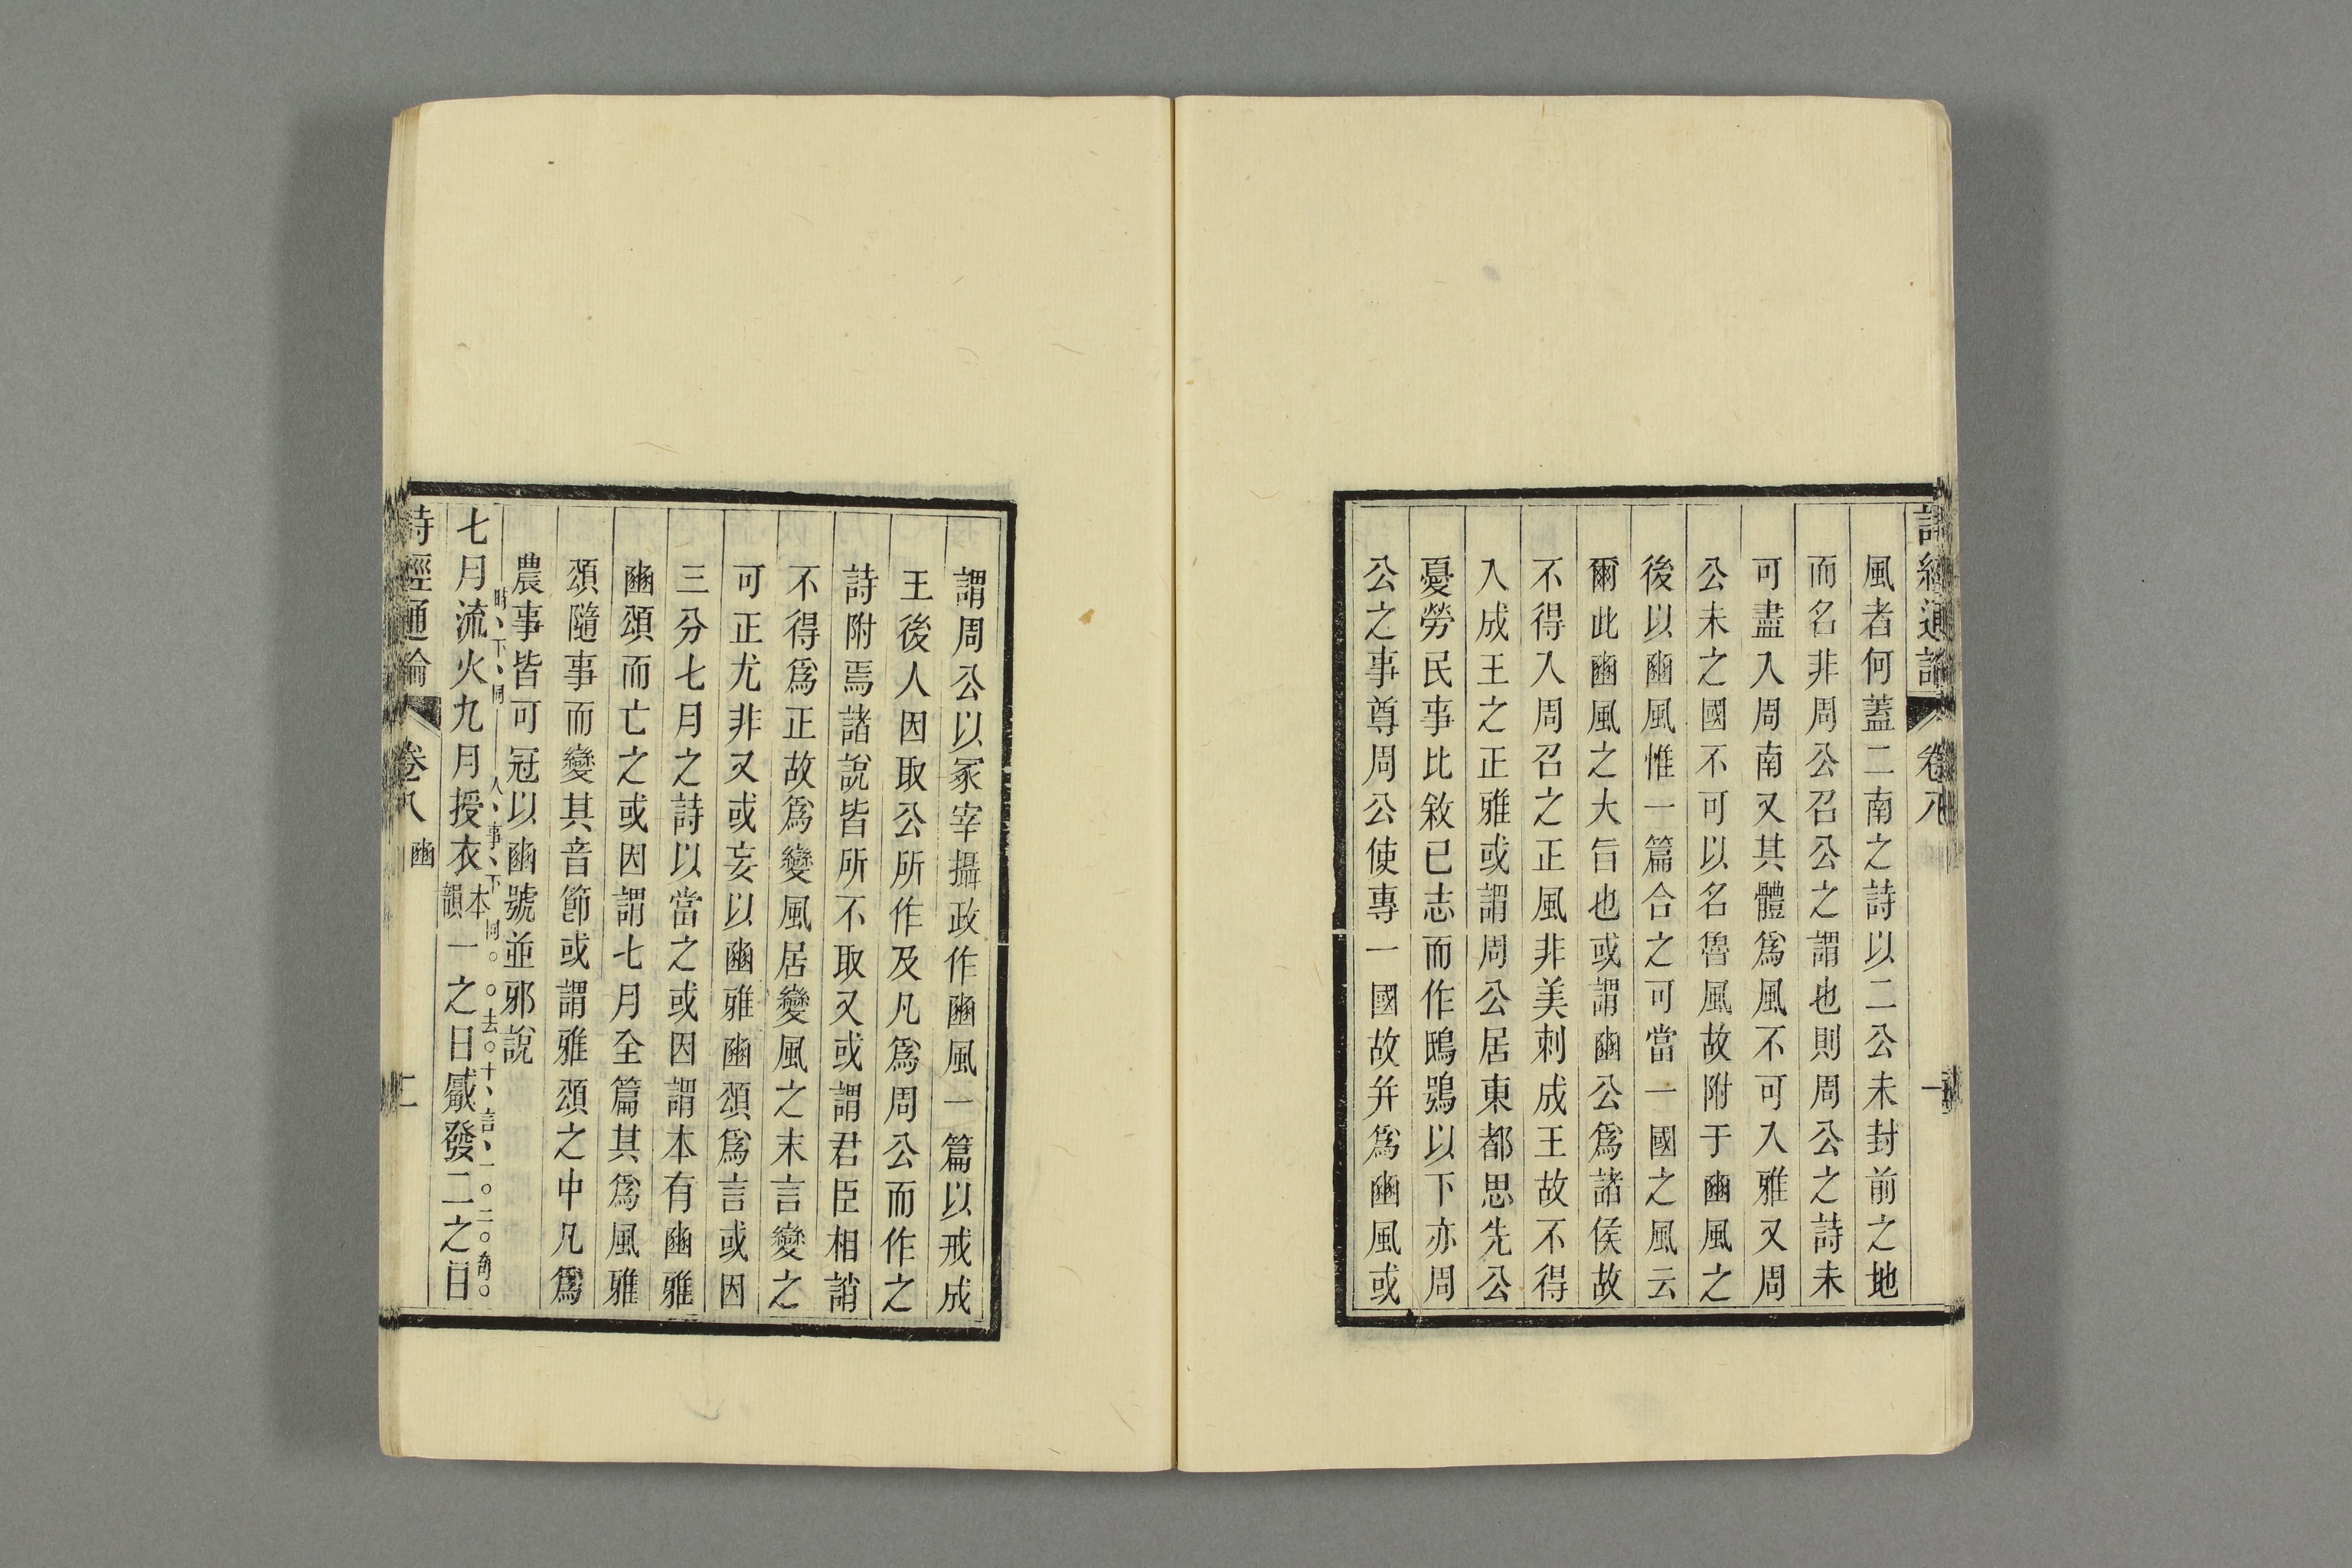 詩經通論 卷八 一
風者何蓋二南之詩以二公未封前之地
而名非周公召公之謂也則周公之詩未
可盡入周南又其體爲風不可入雅又周
公未之國不可以名魯風故附于豳風之
後以豳風惟一篇合之可當一國之風云
爾此豳風之大旨也或謂豳公爲諸侯故
不得入周召之正風非美刺成王故不得
入成王之正雅或謂周公居東都思先公
憂勞民事比敘已志而作鴟鴞以下亦周
公之事尊周公使專一國故幷爲豳風或
謂周公以冢宰攝政作豳風一篇以戒成
王後人因取公所作及凡爲周公而作之
詩附焉諸說皆所不取又或謂君臣相誚
不得爲正故爲變風居變風之末言變之
可正尤非又或妄以豳雅豳頌爲言或因
三分七月之詩以當之或因謂本有豳雅
豳頌而亡之或因謂七月全篇其爲風雅
頌隨事而變其音節或謂雅頌之中凡爲
農事皆可冠以豳號並邪說
時、下、同 人、事、下同。 ○去○十、言、一○二○奇○
七月流火九月授衣本韻一之日觱發二之日
詩經通論 卷八 豳 二